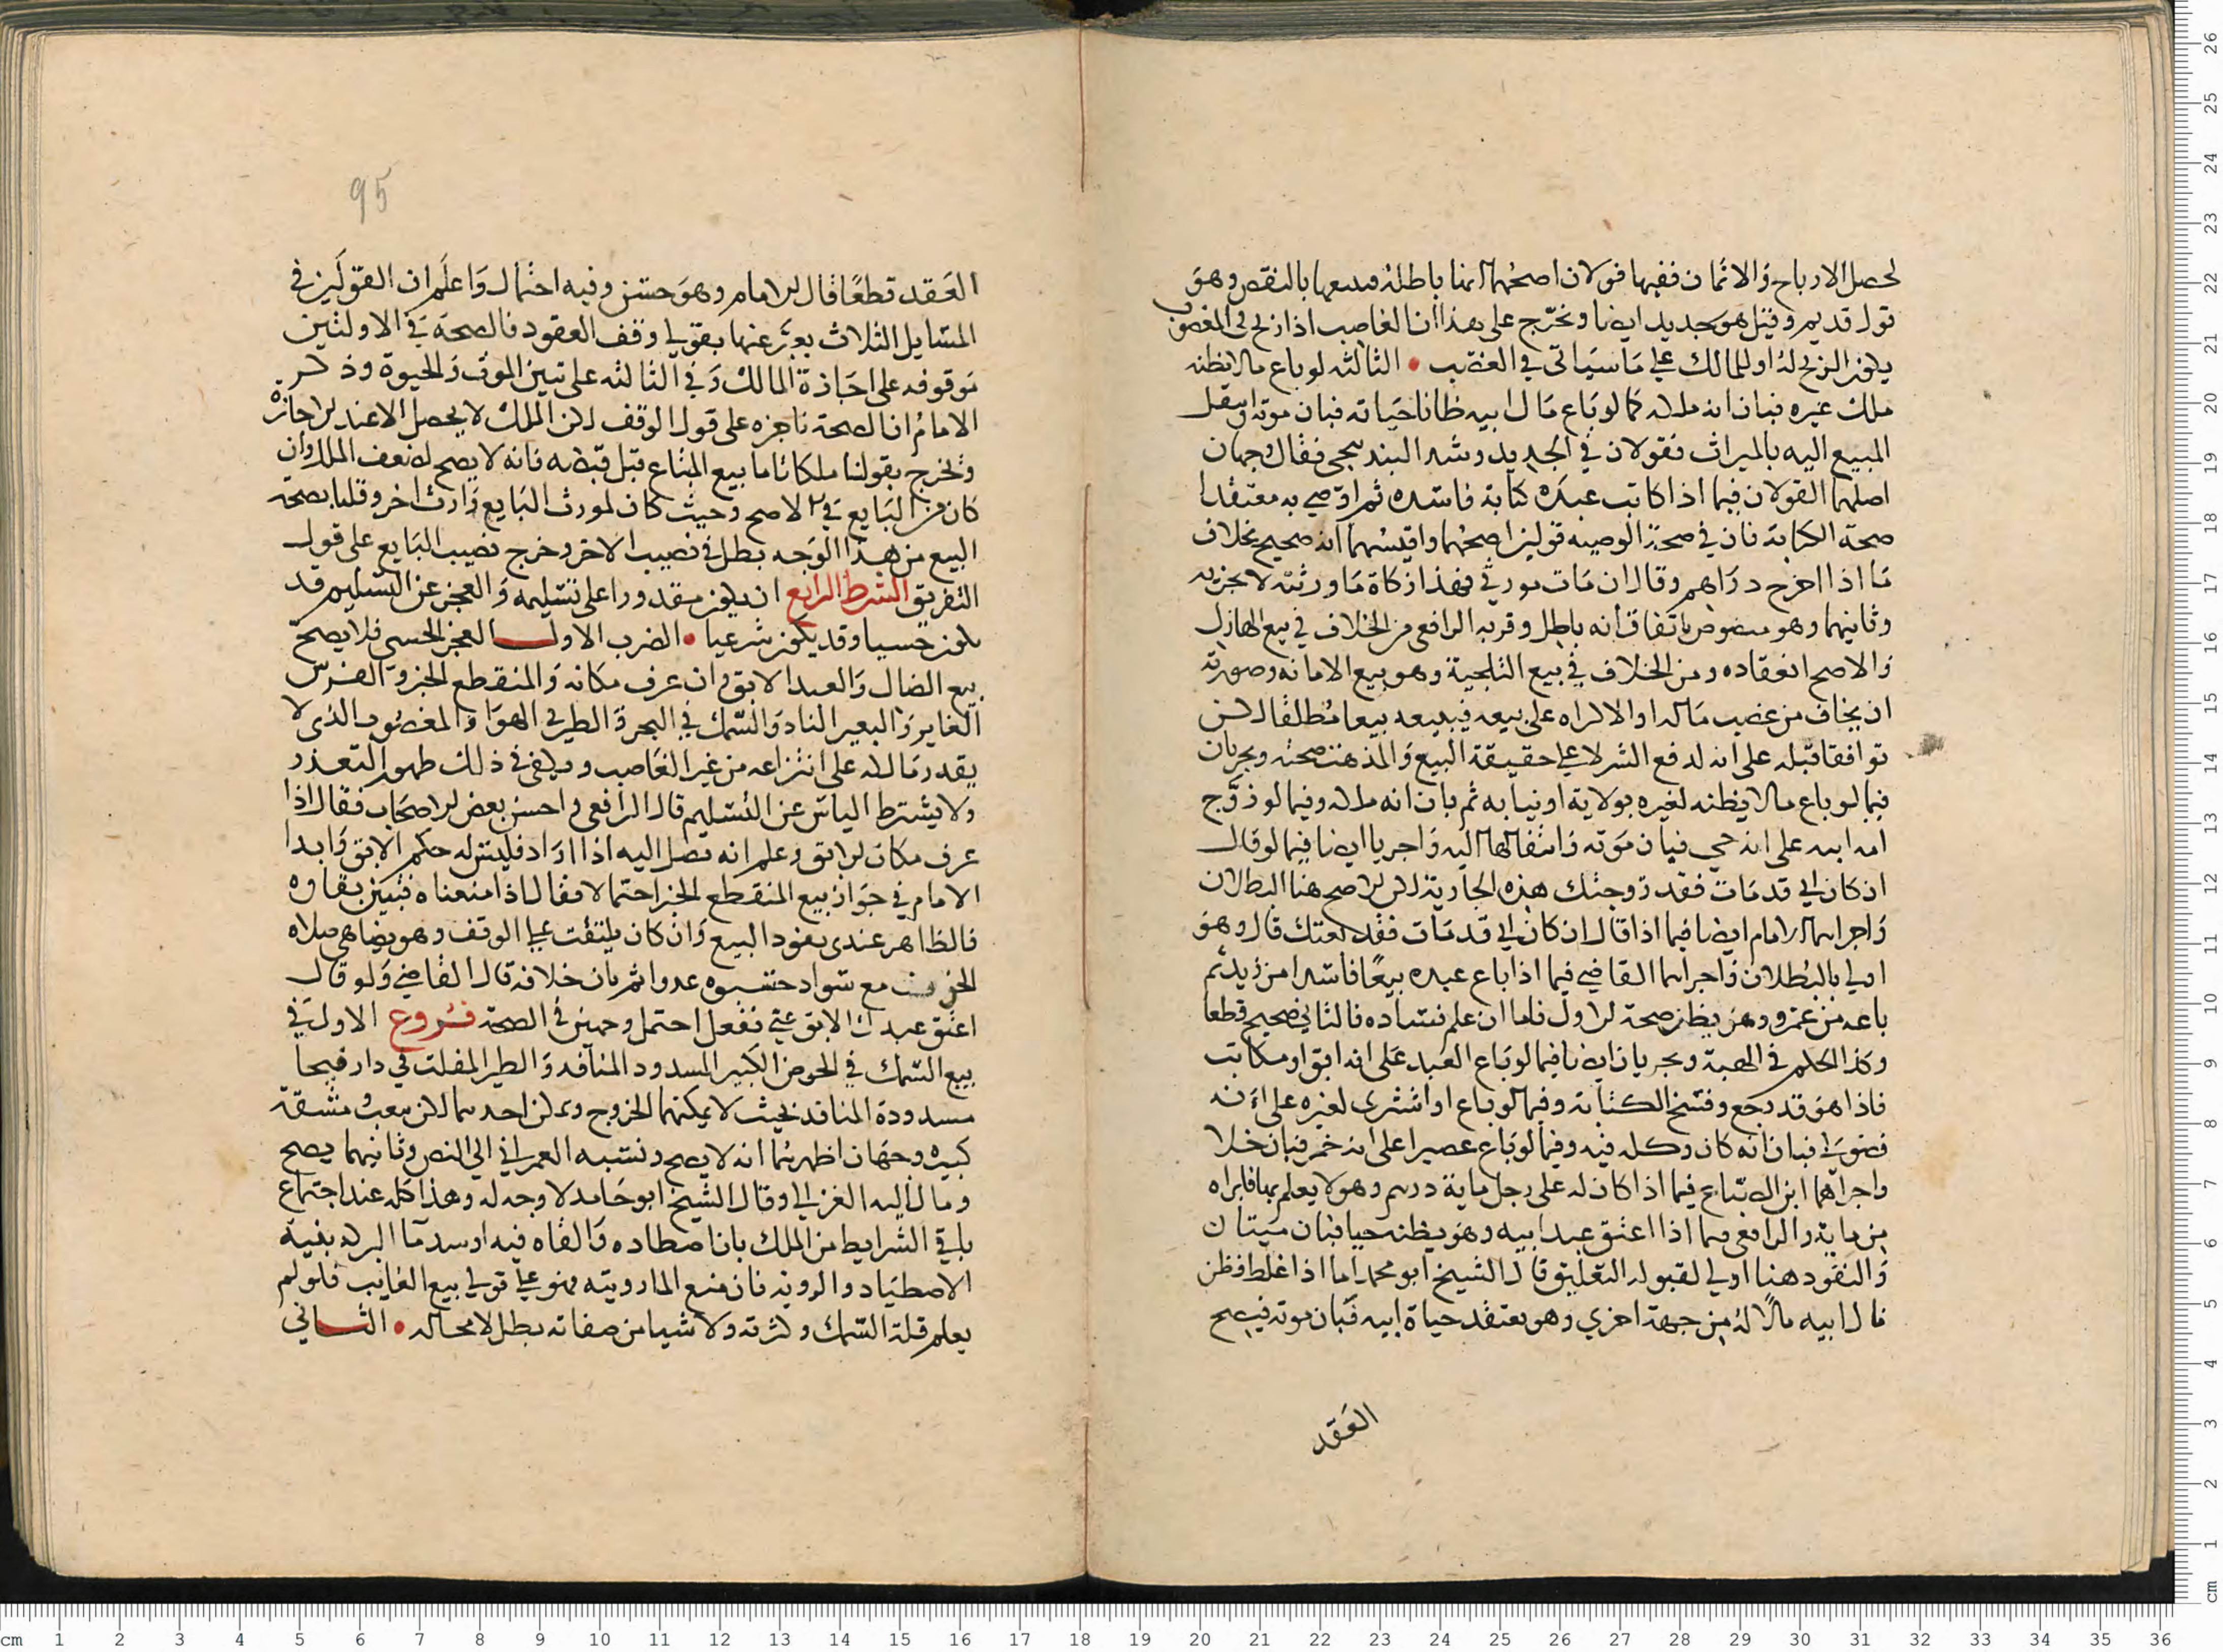 لحصل الارباح والاثمان ففيها قولان اصحهما انها باطلة وبيعها بالنقص وهو
قول قديم وقيل هو جديد ايضا ونخرج على هذا ان الغاصب اذا ربح في المغصوب
يكون الربح له او للمالك على ما سياتي في الغصب • الثالثه لو باع مالا يظنه
ملك غيره فبان انه ملكه كما لو باع مال ابيه ظانا حياته فبان موته او ينقل
المبيع اليه بالميراث فقولان في الجديد وشذ البندنيجي فقال وجهان
اصلهما القولان فيما اذا كاتب عبده كتابة فاسده ثم اوصى به معتقدا
صحة الكتابة فان في صحة الوصيه قولين اصحهما واقيسهما انه صحيح بخلاف
ما اذا اخرج دراهم وقال ان مات مورثي فهذا زكاة ما ورثته لا يجزيه
وثانيهما وهو منصوص باتفاق انه باطل وقربه الرافعي من الخلاف في بيع الهازل
والاصح انعقاده ومن الخلاف في بيع التلجية وهو بيع الامانه وصورته
ان يخاف من غصب ماله او الاكراه على بيعه فيبيعه بيعا مطلقا لكن
توافقا قبله على انه لدفع الشر لا على حقيقة البيع والمذهب صحته ويجريان
فيما لو باع مالا يظنه لغيره بولاية او نيابه ثم بان انه ملكه وفيما لو زوج
امة ابيه على انه حي فبان موته وانتقالها اليه واجريا ايضا فيما لو قال
ان كان ابي قد مات فقد زوجتك هذه الجارية لكن الاصح هنا البطلان
واجراهما الامام ايضا فيما اذا قال ان كان ابي قد مات فقد بعتك قال وهو
اولى بالبطلان واجراهما القاضي فيما اذا باع عبده بيعا فاسدا من زيد ثم
باعه من عمرو وهو يظن صحة الاول فاما ان علم فساده فالثاني صحيح قطعا
وكذا الحكم في الهبة ويجريان ايضا فيما لو باع العبد على انه ابق او مكاتب
فاذا هو قد رجع وفسخ الكتابة وفيما لو باع او اشترى لغيره على انه
فضولي فبان انه كان وكله فيه وفيما لو باع عصيرا على انه خمر فبان خلا
واجراهما ابن الصباغ فيما اذا كان له على رجل ماية درهم وهو لا يعلم بها فابراه
من ماية والرافعي فيما اذا اعتق عبد ابيه وهو يظنه حيا فبان ميتا ن
والنفوذ هنا اولى لقبوله التعليق قال الشيخ ابو محمد اما اذا غلط فظن
مال ابيه مالا له من جهة اخرى وهو يعتقد حياة ابيه فبان موته فيصح
العقد
95
العقد قطعا قال الامام وهو حسن وفيه احتمال واعلم ان القولين في
المسايل الثلاث يعبر عنها بقولي وقف العقود فالصحة في الاولتين
موقوفه على اجازة المالك وفي الثالثه على تبين الموت والحيوة وذكر
الامام ان الصحة ناجزه على قول الوقف لكن الملك لا يحصل الا عند الاجازة
ونخرج بقولنا ملكا تاما بيع المتاع قبل قبضه فانه لا يصح لضعف الملك وان
كان من البايع في الاصح وحيث كان لمورث البايع وارث اخر وقلنا بصحة
البيع من هذا الوجه بطل في نصيب الاخر وخرج نصيب البايع على قول
التفريق الشرط الرابع ان يكون مقدورا على تسليمه والعجز عن التسليم قد
يكون حسيا وقد يكون شرعيا • الضرب الاول العجز الحسي فلا يصح
بيع الضال والعبد الابق وان عرف مكانه والمنقطع الخبر والفرس
الغاير والبعير الناد والسمك في البحر والطير في الهوا والمغصوب الذي لا
يقدر مالكه على انتزاعه من غير الغاصب ويكفي في ذلك ظهور التعذر
ولا يشترط الياس عن التسليم قال الرافعي واحسن بعض الاصحاب فقال اذا
عرف مكان الابق وعلم انه يصل اليه اذا اراد فليس له حكم الابق وابدا
الامام في جواز بيع المنقطع الخبر احتمالا فقال اذا منعناه فتبين بقاوه
فالظاهر عندي نفوذ البيع وان كان يلتفت على الوقف وهو يضاهي صلاه
الخوف مع سواد حسبوه عدوا ثم بان خلافه قال القاضي ولو قال
اعتق عبدك الابق عني ففعل احتمل وجهين في الصحة فروع الاول في
بيع السمك في الحوض الكبير المسدود المنافذ والطير المفلت في دار فيحا
مسدودة المنافذ بحيث لا يمكنها الخروج ويمكن احدهما لكن بتعب ومشقة
كبيره وجهان اظهرهما انه لا يصح ونسبه العمراني الى النص وثانيهما يصح
ومال اليه الغزالي وقال الشيخ ابو حامد لا وجه له وهذا كله عند اجتماع
باقي الشرايط من الملك بان اصطاده والقاه فيه او سد ما البركه بنية
الاصطياد والرويه فان منع الما رويته فهو على قولي بيع الغايب فلو لم
يعلم قلة السمك وكثرته ولا شيا من صفاته بطل لا محاله • الثاني